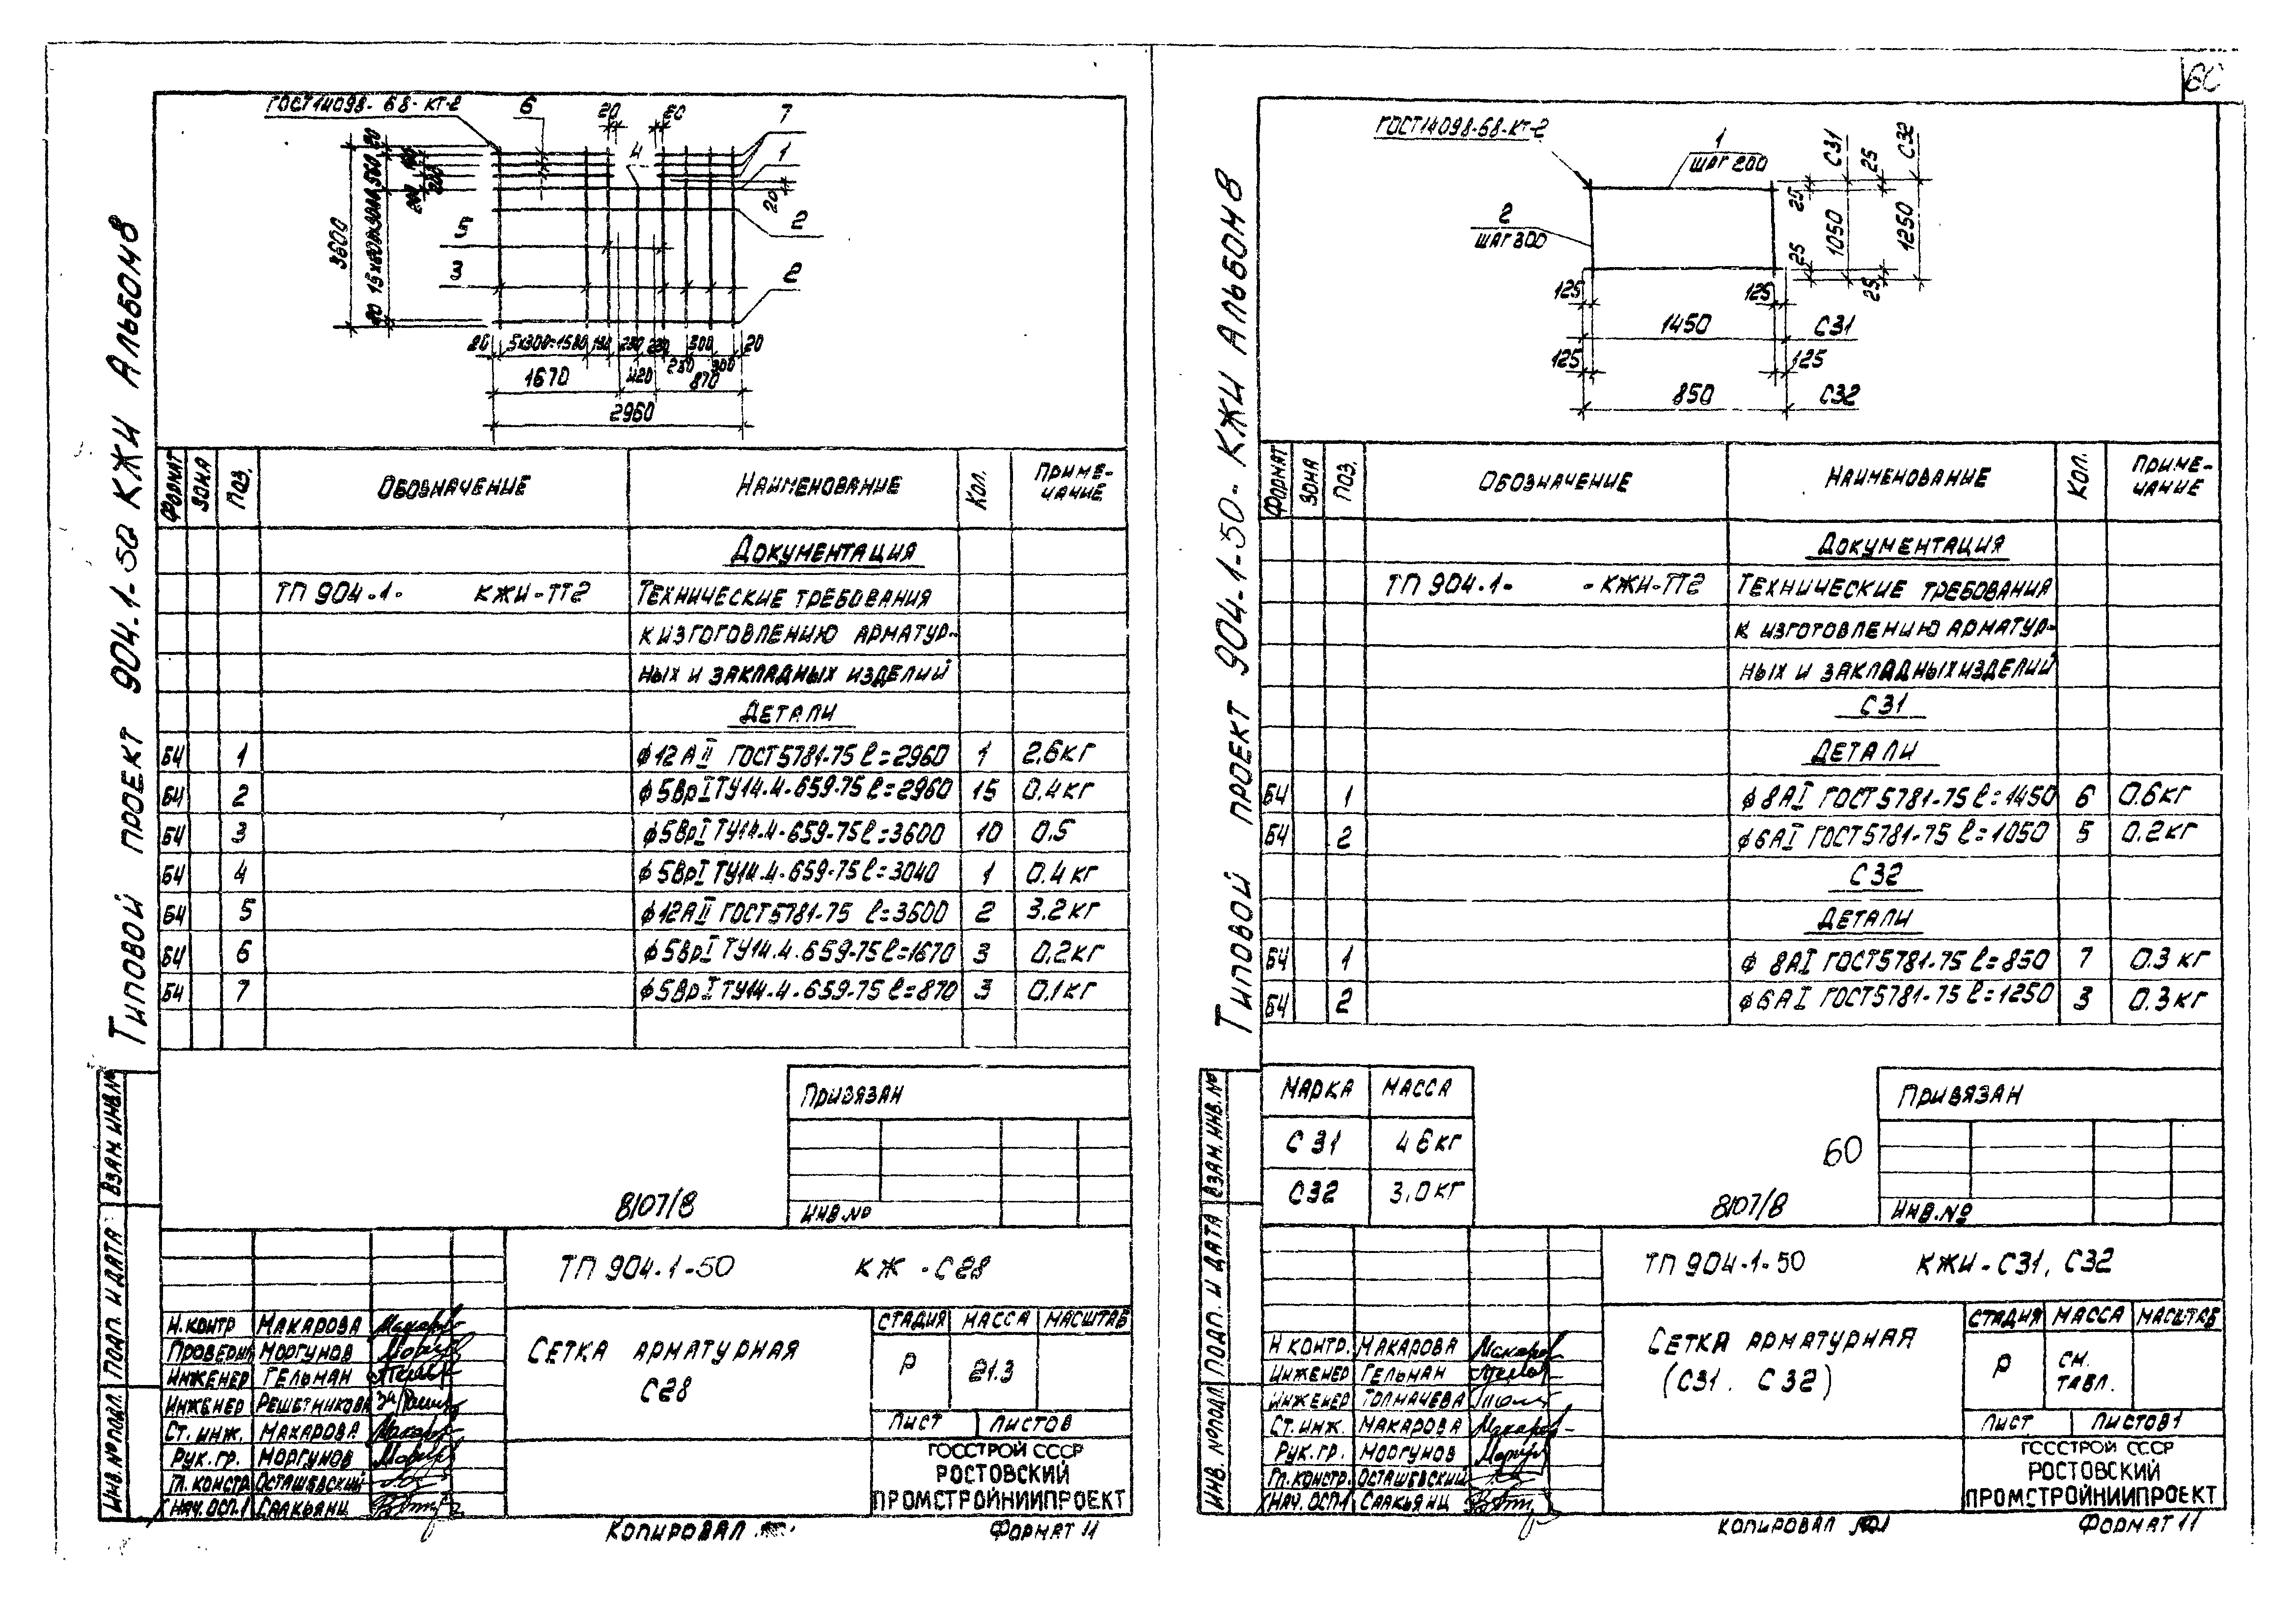 60
Типовой проект 904.1-50 КЖИ Альбом 8
ГОСТ 14098-68-КТ-2
6
20
20
7
4
1
20
5
2
3
2
3600
20
20
200
20 5х300=1580 190 250 230 500 20
250 300
1670 420 870
2960
Формат Зона Поз. Обозначение Наименование Кол. Приме-
чание
Документация
ТП 904.1- КЖИ-ТТ2 Технические требования
к изготовлению арматур-
ных и закладных изделий
Детали
БЧ 1 ф12АII ГОСТ5781-75 ℓ=2960 1 2,6кг
БЧ 2 ф5ВрI ТУ14.4-659-75 ℓ=2960 15 0,4кг
БЧ 3 ф5ВрI ТУ14.4-659-75 ℓ=3600 10 0.5
БЧ 4 ф5ВрI ТУ14.4-659-75 ℓ=3040 1 0.4кг
БЧ 5 ф12АII ГОСТ5781-75 ℓ=3600 2 3.2кг
БЧ 6 ф5ВрI ТУ14.4.659-75 ℓ=1670 3 0,2кг
БЧ 7 ф5ВрI ТУ14.4-659-75 ℓ=870 3 0,1кг
Привязан
Инв.№
8107/8
Взам.инв.№
Подп. и дата
Инв.№подл.
ТП 904.1-50 КЖ -С28
Н.контр Макарова
Проверил Моргунов
Инженер Гельман
Инженер Решетникова
Ст. инж. Макарова
Рук.гр. Моргунов
Гл.констр Осташевский
Нач.ОСП1 Саакьянц
Сетка арматурная
С28
Стадия Масса Масштаб
Р 21.3
Лист Листов
ГОССТРОЙ СССР
РОСТОВСКИЙ
ПРОМСТРОЙНИИПРОЕКТ
Копировал
Формат 11
Типовой проект 904-1-50- КЖИ Альбом 8
ГОСТ 14098-68-КТ-2
1
шаг 200
2
шаг 300
С31 С32
25 25
25 1050 1250
25 25
125 125
1450 С31
125 125
850 С32
Формат Зона Поз. Обозначение Наименование Кол. Приме-
чание
Документация
ТП 904.1- -КЖИ-ТТ2 Технические требования
к изготовлению арматур-
ных и закладных изделий
С31
Детали
БЧ 1 ф 8АI ГОСТ5781-75 ℓ=1450 6 0.6кг
БЧ 2 ф6АI ГОСТ5781-75 ℓ=1050 5 0.2кг
С32
Детали
БЧ 1 ф 8АI ГОСТ5781-75 ℓ=850 7 0.3 кг
БЧ 2 ф6АI ГОСТ5781-75 ℓ=1250 3 0.3кг
Марка Масса
С31 4 6кг
С32 3.0кг
60
8107/8
Привязан
Инв.№
Взам.инв.№
Подп. и дата
Инв.№подл.
ТП 904-1-50 КЖИ-С31, С32
Н контр. Макарова
Инженер Гельман
Инженер Толмачева
Ст.инж. Макарова
Рук.гр. Моргунов
Гл.констр. Осташевский
Нач.ОСП1 Саакьянц
Сетка арматурная
(С31. С32)
Стадия Масса Масштаб
Р См.
табл.
Лист Листов1
ГОССТРОЙ СССР
РОСТОВСКИЙ
ПРОМСТРОЙНИИПРОЕКТ
Копировал
Формат 11